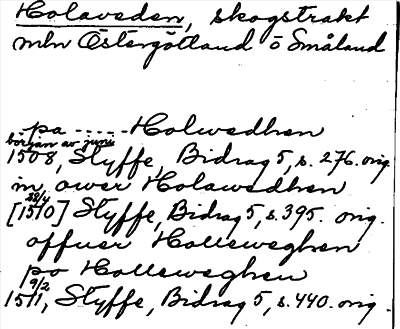 Holaveden, skogstrakt
mln Östergötland o Småland
pa ----- Holwedhen
början av juni
1508, Styffe, Bidrag 5, s. 276. orig.
in, ower Holawedhen
29/4
[1510] Styffe, Bidrag 5, s. 395. orig.
offuer Holleweghen
po Holleweghen
9/2
1511, Styffe, Bidrag 5, s. 440. orig.